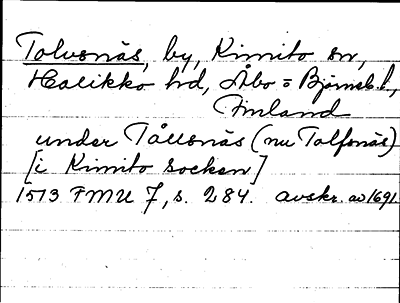 Tolvsnäs, by, Kimito sn,
Halikko hd, Åbo = Björneb. l.,
Finland
under Tållsnäs (nu Tolfsnäs)
[i Kimito socken]
1513 FMU 7, s. 284. avskr. av 1691.